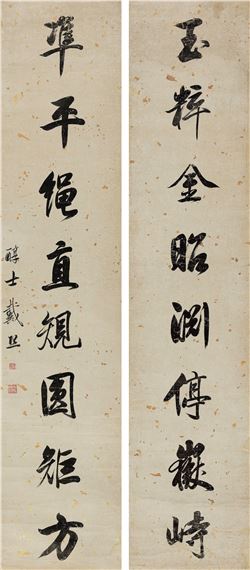 玉粹金昭渊停嶽峙
準平绳直規圆矩方
醇士戴熙